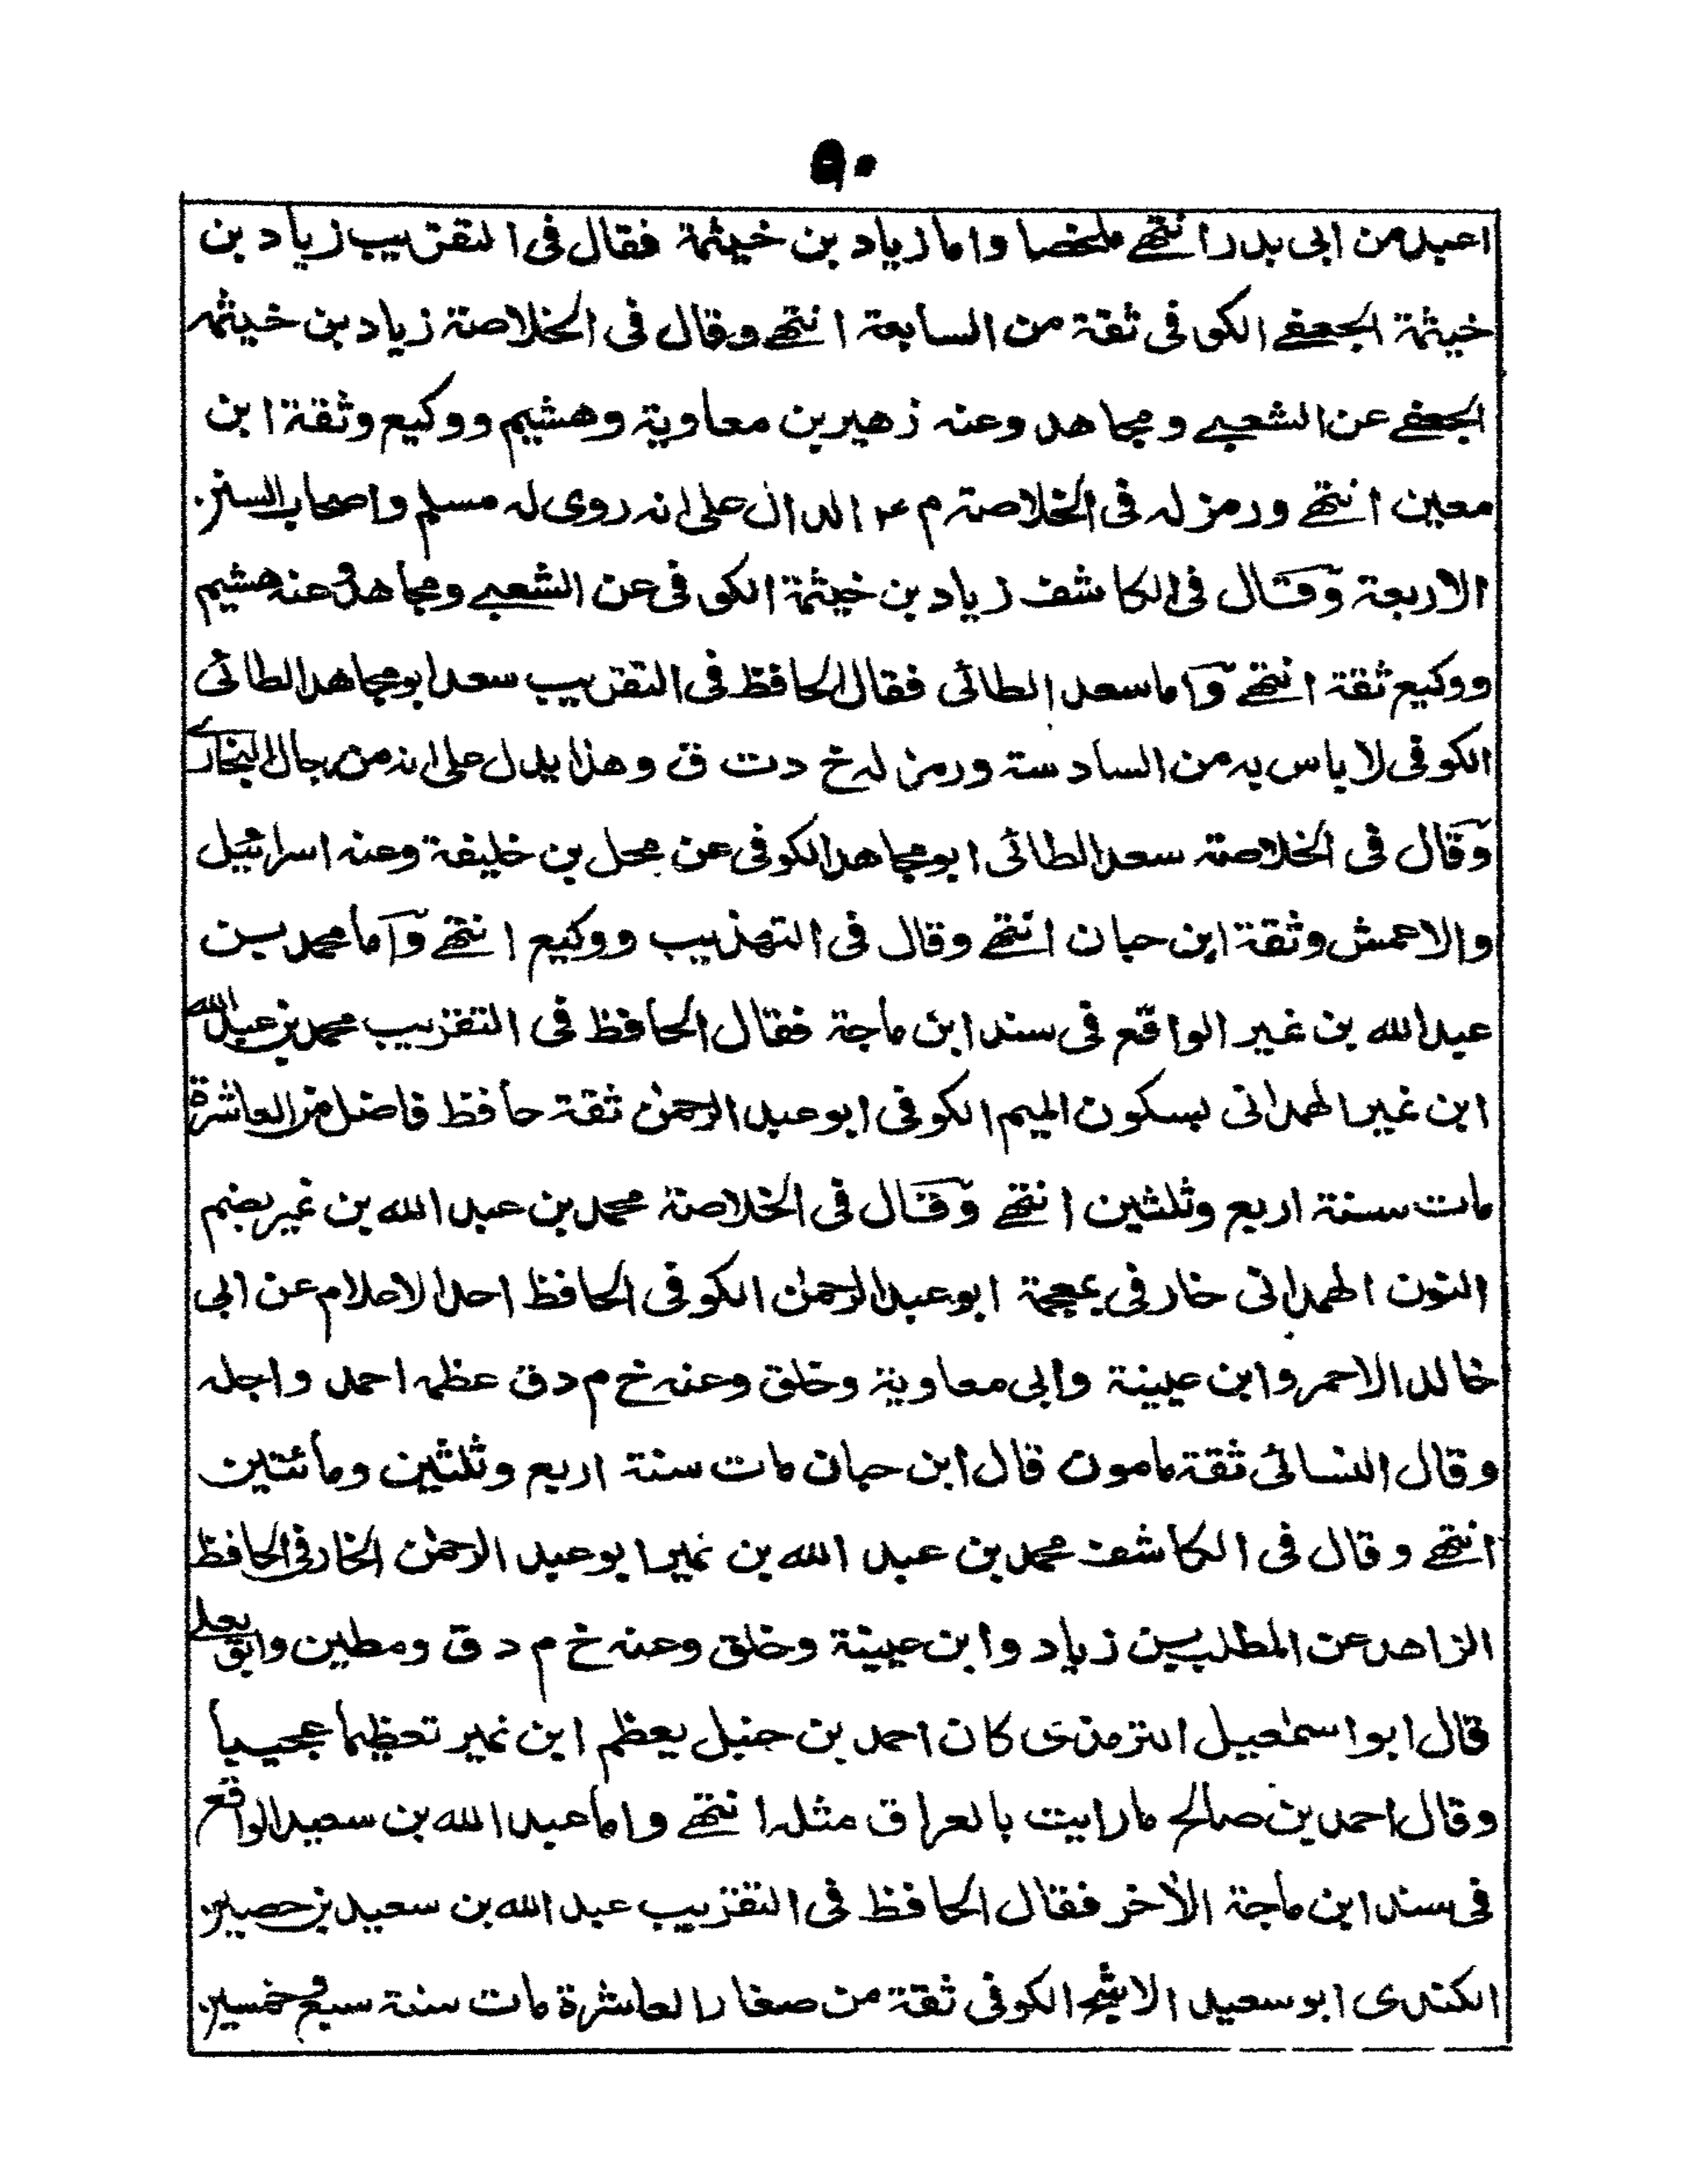 ٩٠
اعبد من ابى بدر انتهے ملخصا واما زياد بن خيثمة فقال فى التقريب زياد بن
خيثمة الجعفے الكوفى ثقة من السابعة انتهے وقال فى الخلاصة زياد بن خيثمه
الجعفے عن الشعبے ومجاهد وعنه زهير بن معاوية وهشيم ووكيع وثقة ابن
معين انتهے ورمز له فى الخلاصة م عه الدال على انه روى له مسلم واصحاب السنن
الاربعة وقال فى الكاشف زياد بن خيثمة الكوفى عن الشعبے ومجاهد وعنه هشيم
ووكيع ثقة انتهے واما سعد الطائى فقال الحافظ فى التقريب سعد ابو مجاهد الطائى
الكوفى لا باس به من السادسة ورمز له خ د ت ق وهذا يدل على انه من رجال البخارے
وقال فى الخلاصة سعد الطائى ابو مجاهد الكوفى عن محل بن خليفة وعنه اسرائيل
والاعمش وثقة ابن حبان انتهے وقال فى التهذيب ووكيع انتهے واما محمد بن
عبد الله بن نمير الواقع فى سند ابن ماجة فقال الحافظ فى التقريب محمد بن عبد الله
ابن نمير الهمدانى بسكون الميم الكوفى ابو عبد الرحمٰن ثقة حافظ فاضل من العاشرة
مات سنة اربع وثلثين انتهے وقال فى الخلاصة محمد بن عبد الله بن نمير بضم
النون الهمدانى خارفى بمعجمة ابو عبد الرحمٰن الكوفى الحافظ احد الاعلام عن ابى
خالد الاحمر وابن عيينة وابى معاوية وخلق وعنه خ م د ق عظمه احمد واجله
وقال النسائى ثقة مامون قال ابن حبان مات سنة اربع وثلثين ومائتين
انتهے وقال فى الكاشف محمد بن عبد الله بن نمير ابو عبد الرحمٰن الخارفى الحافظ
الزاهد عن المطلب بن زياد وابن عيينة وخلق وعنه خ م د ق ومطين وابو يعلے
قال ابو اسمٰعيل الترمذى كان احمد بن حنبل يعظم ابن نمير تعظيما عجيبا
وقال احمد بن صالح ما رايت بالعراق مثله انتهے واما عبد الله بن سعيد الواقع
فى سند ابن ماجة الأخر فقال الحافظ فى التقريب عبد الله بن سعيد بن حصين
الكندى ابو سعيد الاشج الكوفى ثقة من صغار العاشرة مات سنة سبع وخمسين